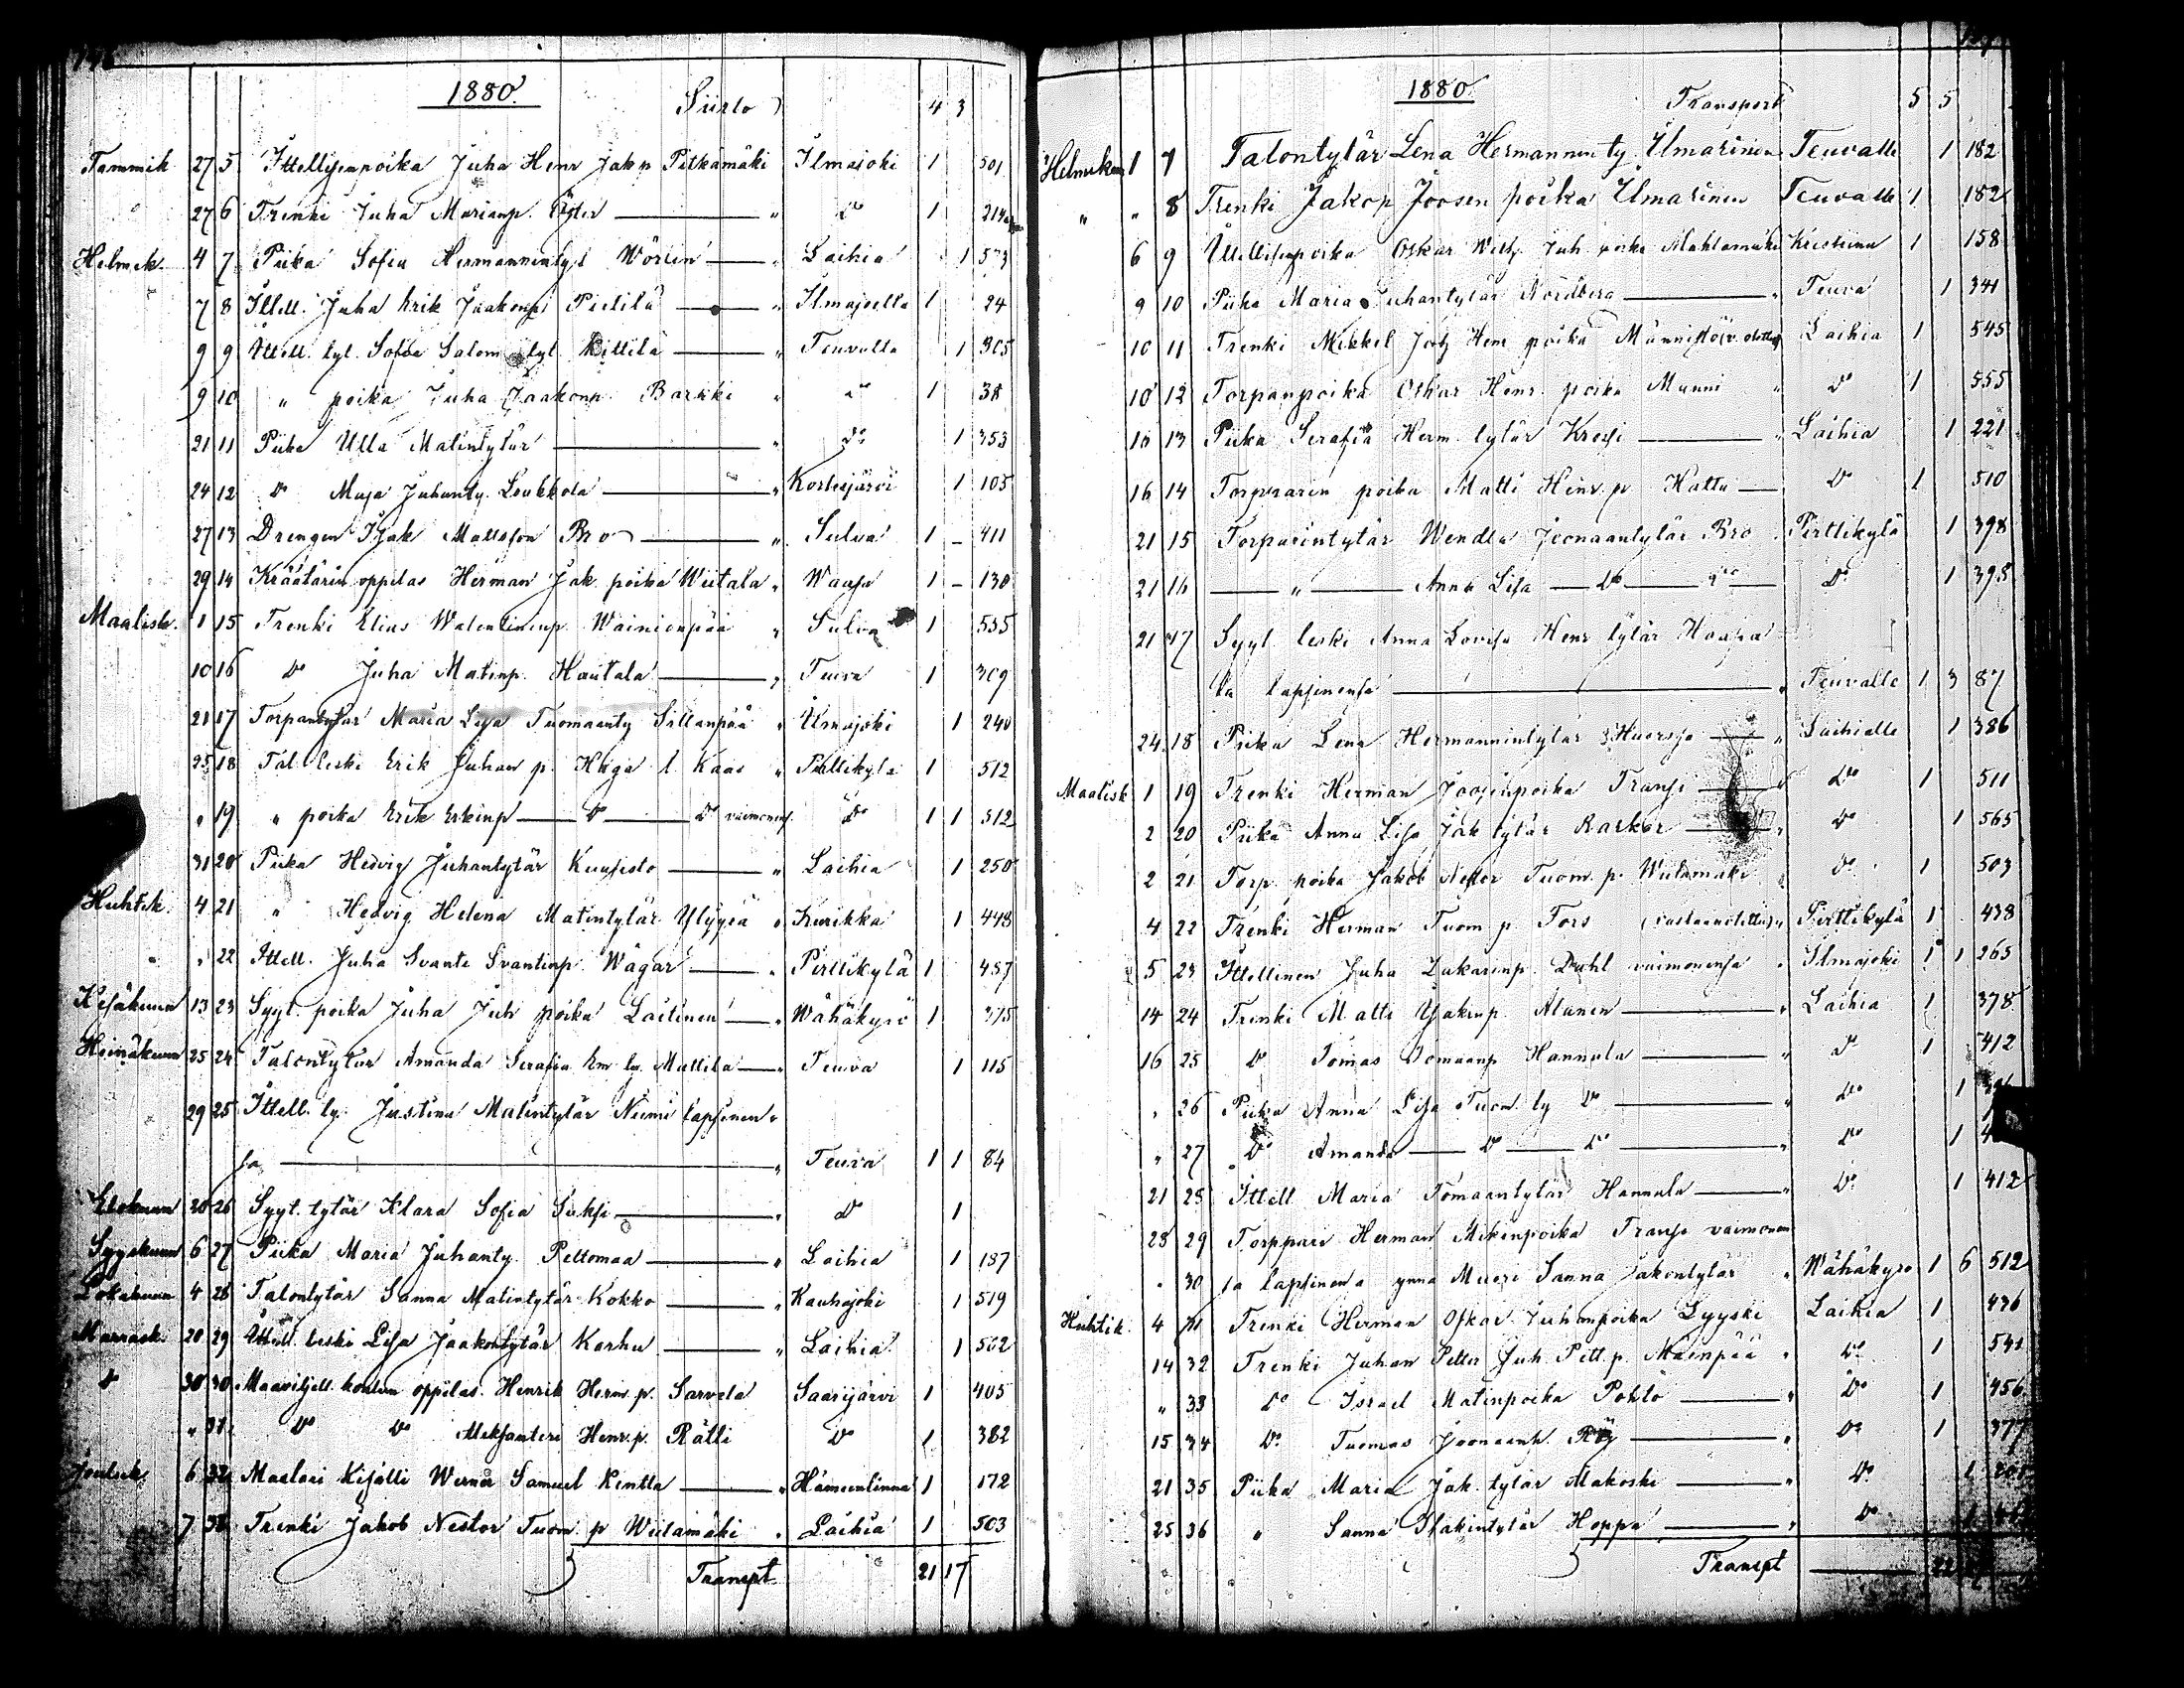 1880
Siirto 4 3
Tammik 27 5 Ittellisenpoika Juha Henr Jakp Pitkämäki Ilmajoki 1 501
27 6 Trenki Juha Marianp. " Do 1 214
Helmik. 4 7 Piika Sofia Hermannintyt Wörlin " Laihia 1 573
7 8 Ittell. Juha Erik Jaakonp Pietilä " Ilmajoella 1 24
9 9 Ittell. tyt. Sofia Salom tyt. Kittilä " Teuvalla 1 305
9 10 " poika Juha Jaakonp. Barkki " Do 1 38
21 11 Piika Ulla Matintytär " Do 1 353
24 12 Do Maja Juhanty. Loukkola " Kortesjärvi 1 105
27 13 Drengen Isak Mattsson Bro " Sulva 1 - 411
29 14 Kräätärin oppilas Herman Jak. poika Wiitala " Waasa 1 - 130
Maalisk. 1 15 Trenki Elias Walentininp. Wainionpää " Sulva 1 555
10 16 Do Juha Matinp. Hautala " Teuva 1 309
21 17 Torpantytär Maria Lisa Tuomaanty Sillanpää " Ilmajoki 1 240
25 18 Tal. leski Erik Juhan p. Haga l. Kaas " Pirttikylä 1 512
" 19 " poika Erik Erkinp Do Do vaimonens. Do 1 1 512
31 20 Piika Hedvig Juhantytär Kuusisto " Laihia 1 250
Huhtik. 4 21 " Hedvig Helena Matintytär Ylyysä " Kurikka 1 448
" 22 Ittell. Juha Svante Svantinp. Wägar " Pirttikylä 1 457
Kesäkuun 13 23 Syyt. poika Juha Juh poika Laitinen " Wähäkyrö 1 375
Heinäkuun 25 24 Talontytär Amanda Serafia Em. ty. Mattila " Teuva 1 115
29 25 Ittell. ty. Justina Matintytär Niemi lapsinen
sa " Teuva 1 1 84
Elokuun 20 26 Syyt. tytär Klara Sofia Suksi " Do 1
Syyskuun 6 27 Piika Maria Juhanty. Peltomaa " Laihia 1 187
Lokakuun 4 28 Talontytär Sanna Matintytär Kokko " Kauhajoki 1 519
Marrask. 20 29 Ittell. leski Lisa Jaakontytär Karhu " Laihia 1 502
Do 30 30 Maaviljell. koulun oppilas. Henrik Herm. p. Sarvela Saarijärvi 1 405
" 31 Do Do Aleksanteri Henr. p. Rätti Do 1 382
Jouluk. 6 32 Maalari Kisälli Werner Samuel Rintta " Hämeenlinna 1 172
7 33 Trenki Jakob Nestor Tuom. p Wiitamäki " Laihia 1 503
Transpt 21 17
1880
Transport 5 5
Helmikuu 1 7 Talontytär Lena Hermannin ty Ilmarinen Teuvalle 1 182
" " 8 Trenki Jakop Joosen poika Ilmarinen Teuvalle 1 182
6 9 Ittellisenpoika Oskar Wilh. Juh. poika Mahlamäki Kristiina 1 158
9 10 Piika Maria Juhantytär Nordberg " Teuva 1 341
10 11 Trenki Mikkel Henr poika Männistö Laihia 1 545
10 12 Torpanpoika Oskar Henr. poika Munni " Do 1 555
16 13 Piika Serafia Herm. tytär Kressi " Laihia 1 221
16 14 Torpparin poika Matti Henr. p. Hattu Do 1 510
21 15 Torparintytär Wendla Joonaantytär Bro Pirttikylä 1 398
21 16 " Anna Lisa Do Do Do 1 398
21 17 Syyt. leski Anna Lovisa Henr tytär Haapa
la lapsinensa " Teuvalle 1 3 87
24 18 Piika Lena Hermannintytär Huorsja " Laihialle 1 386
Maalisk 1 19 Trenki Herman Joosinpoika Transi " Do 1 511
2 20 Piika Anna Lisa Jak tytär Barkar " Do 1 565
2 21 Torp. poika Jakob Nestor Tuom. p. Wiitamäki " Do 1 503
4 22 Trenki Herman Tuom p. Fors " Pirttikylä 1 438
5 23 Ittellinen Juha Zakarinp. Dahl vaimonensa " Ilmajoki 1 1 265
14 24 Trenki Matti Yakinp. Alanen " Laihia 1 378
16 25 Do Tomas Tomaanp Hannula " Do 1 412
" 26 Piika Anna Lisa Tuom. ty Do " Do 1
" 27 Do Amanda Do Do " Do 1
21 28 Ittell Maria Tomaantytär Hannula " Do 1 412
28 29 Torppari Herman Mikinpoika Transi vaimonen
" 30 sa lapsinensa ynnä Muori Sanna Jakontytär " Wähäkyro 1 6 512
Huhtik. 4 31 Trenki Herman Oskar Juhanpoika Lyyski Laihia 1 436
14 32 Trenki Juhan Petter Juh. Pett. p. Mäenpää " Do 1 541
" 33 Do Israel Matinpoika Pohto " Do 1 456
15 34 Do Tuomas Joonaanp. " Do 1 377
21 35 Piika Maria Jak. tytär Makoski " Do 1
25 36 " Sanna Isakintytär Hoppa " Do 1
Transpt 22